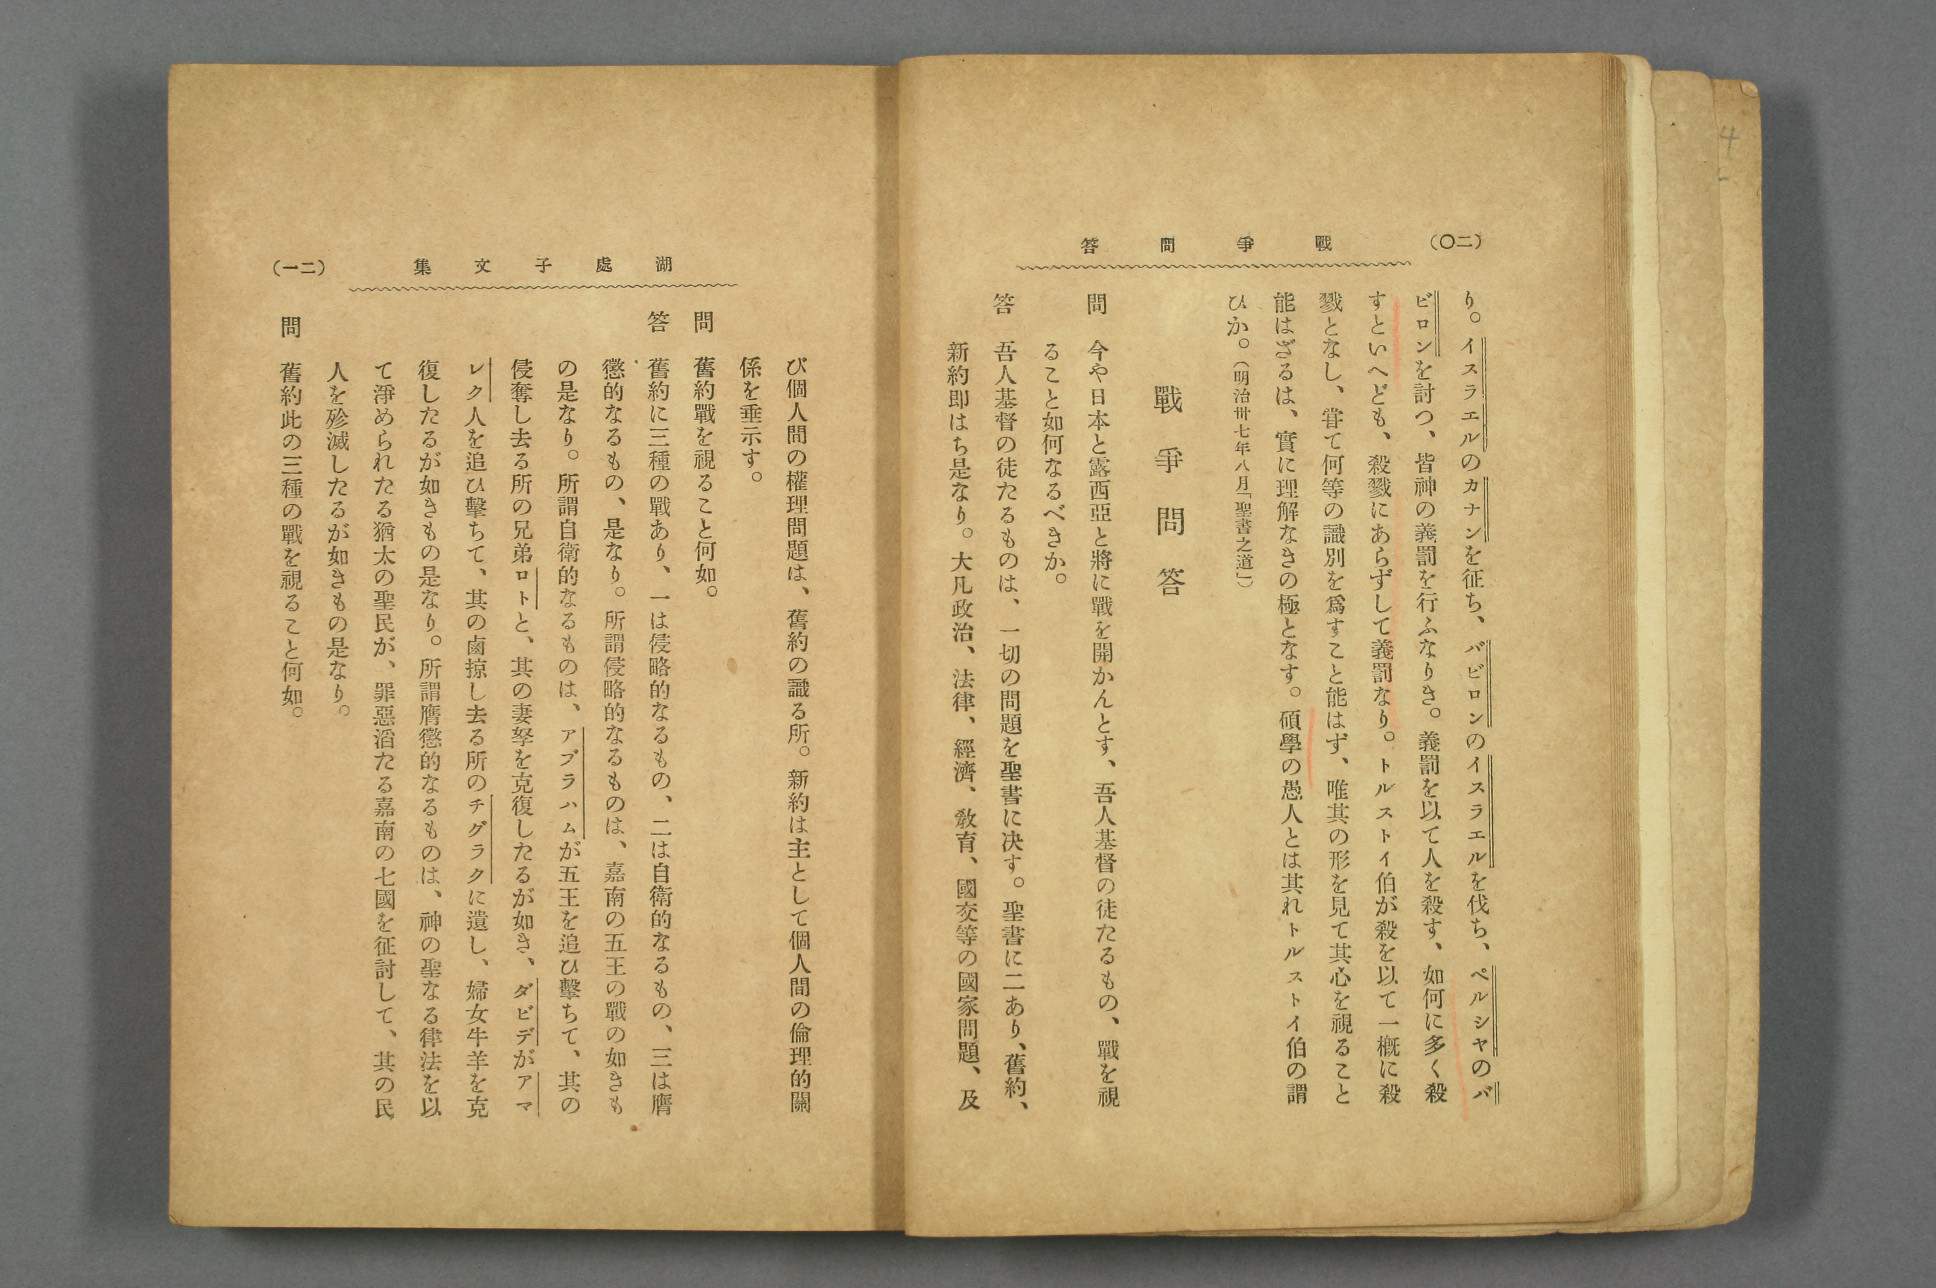 (二〇)
戰爭問答
り。イスラエルのカナンを征ち、バビロンのイスラエルを伐ち、ペルシヤのバ
ビロンを討つ、皆神の義罰を行ふなりき。義罰を以て人を殺す、如何に多く殺
すといへども、殺戮にあらずして義罰なり。トルストイ伯が殺を以て一概に殺
戮となし、甞て何等の識別を爲すこと能はず、唯其の形を見て其心を視ること
能はざるは、實に理解なきの極となす。碩學の愚人とは其れトルストイ伯の謂
ひか。(明治卅七年八月「聖書之道」)
戰爭問答
問 今や日本と露西亞と將に戰を開かんとす、吾人基督の徒たるもの、戰を視
ること如何なるべきか。
答 吾人基督の徒たるものは、一切の問題を聖書に决す。聖書に二あり、舊約、
新約即はち是なり。大凡政治、法律、經濟、敎育、國交等の國家問題、及
湖處子文集
(二一)
び個人間の權理問題は、舊約の識る所。新約は主として個人間の倫理的關
係を垂示す。
問 舊約戰を視ること何如。
答 舊約に三種の戰あり、一は侵略的なるもの、二は自衛的なるもの、三は膺
懲的なるもの、是なり。所謂侵略的なるものは、嘉南の五王の戰の如きも
の是なり。所謂自衛的なるものは、アブラハムが五王を追ひ擊ちて、其の
侵奪し去る所の兄弟ロトと、其の妻孥を克復したるが如き、ダビデがアマ
レク人を追ひ擊ちて、其の鹵掠し去る所のチグラクに遺し、婦女牛羊を克
復したるが如きもの是なり。所謂膺懲的なるものは、神の聖なる律法を以
て淨められたる猶太の聖民が、罪惡滔たる嘉南の七國を征討して、其の民
人を殄滅したるが如きもの是なり。
問 舊約此の三種の戰を視ること何如。